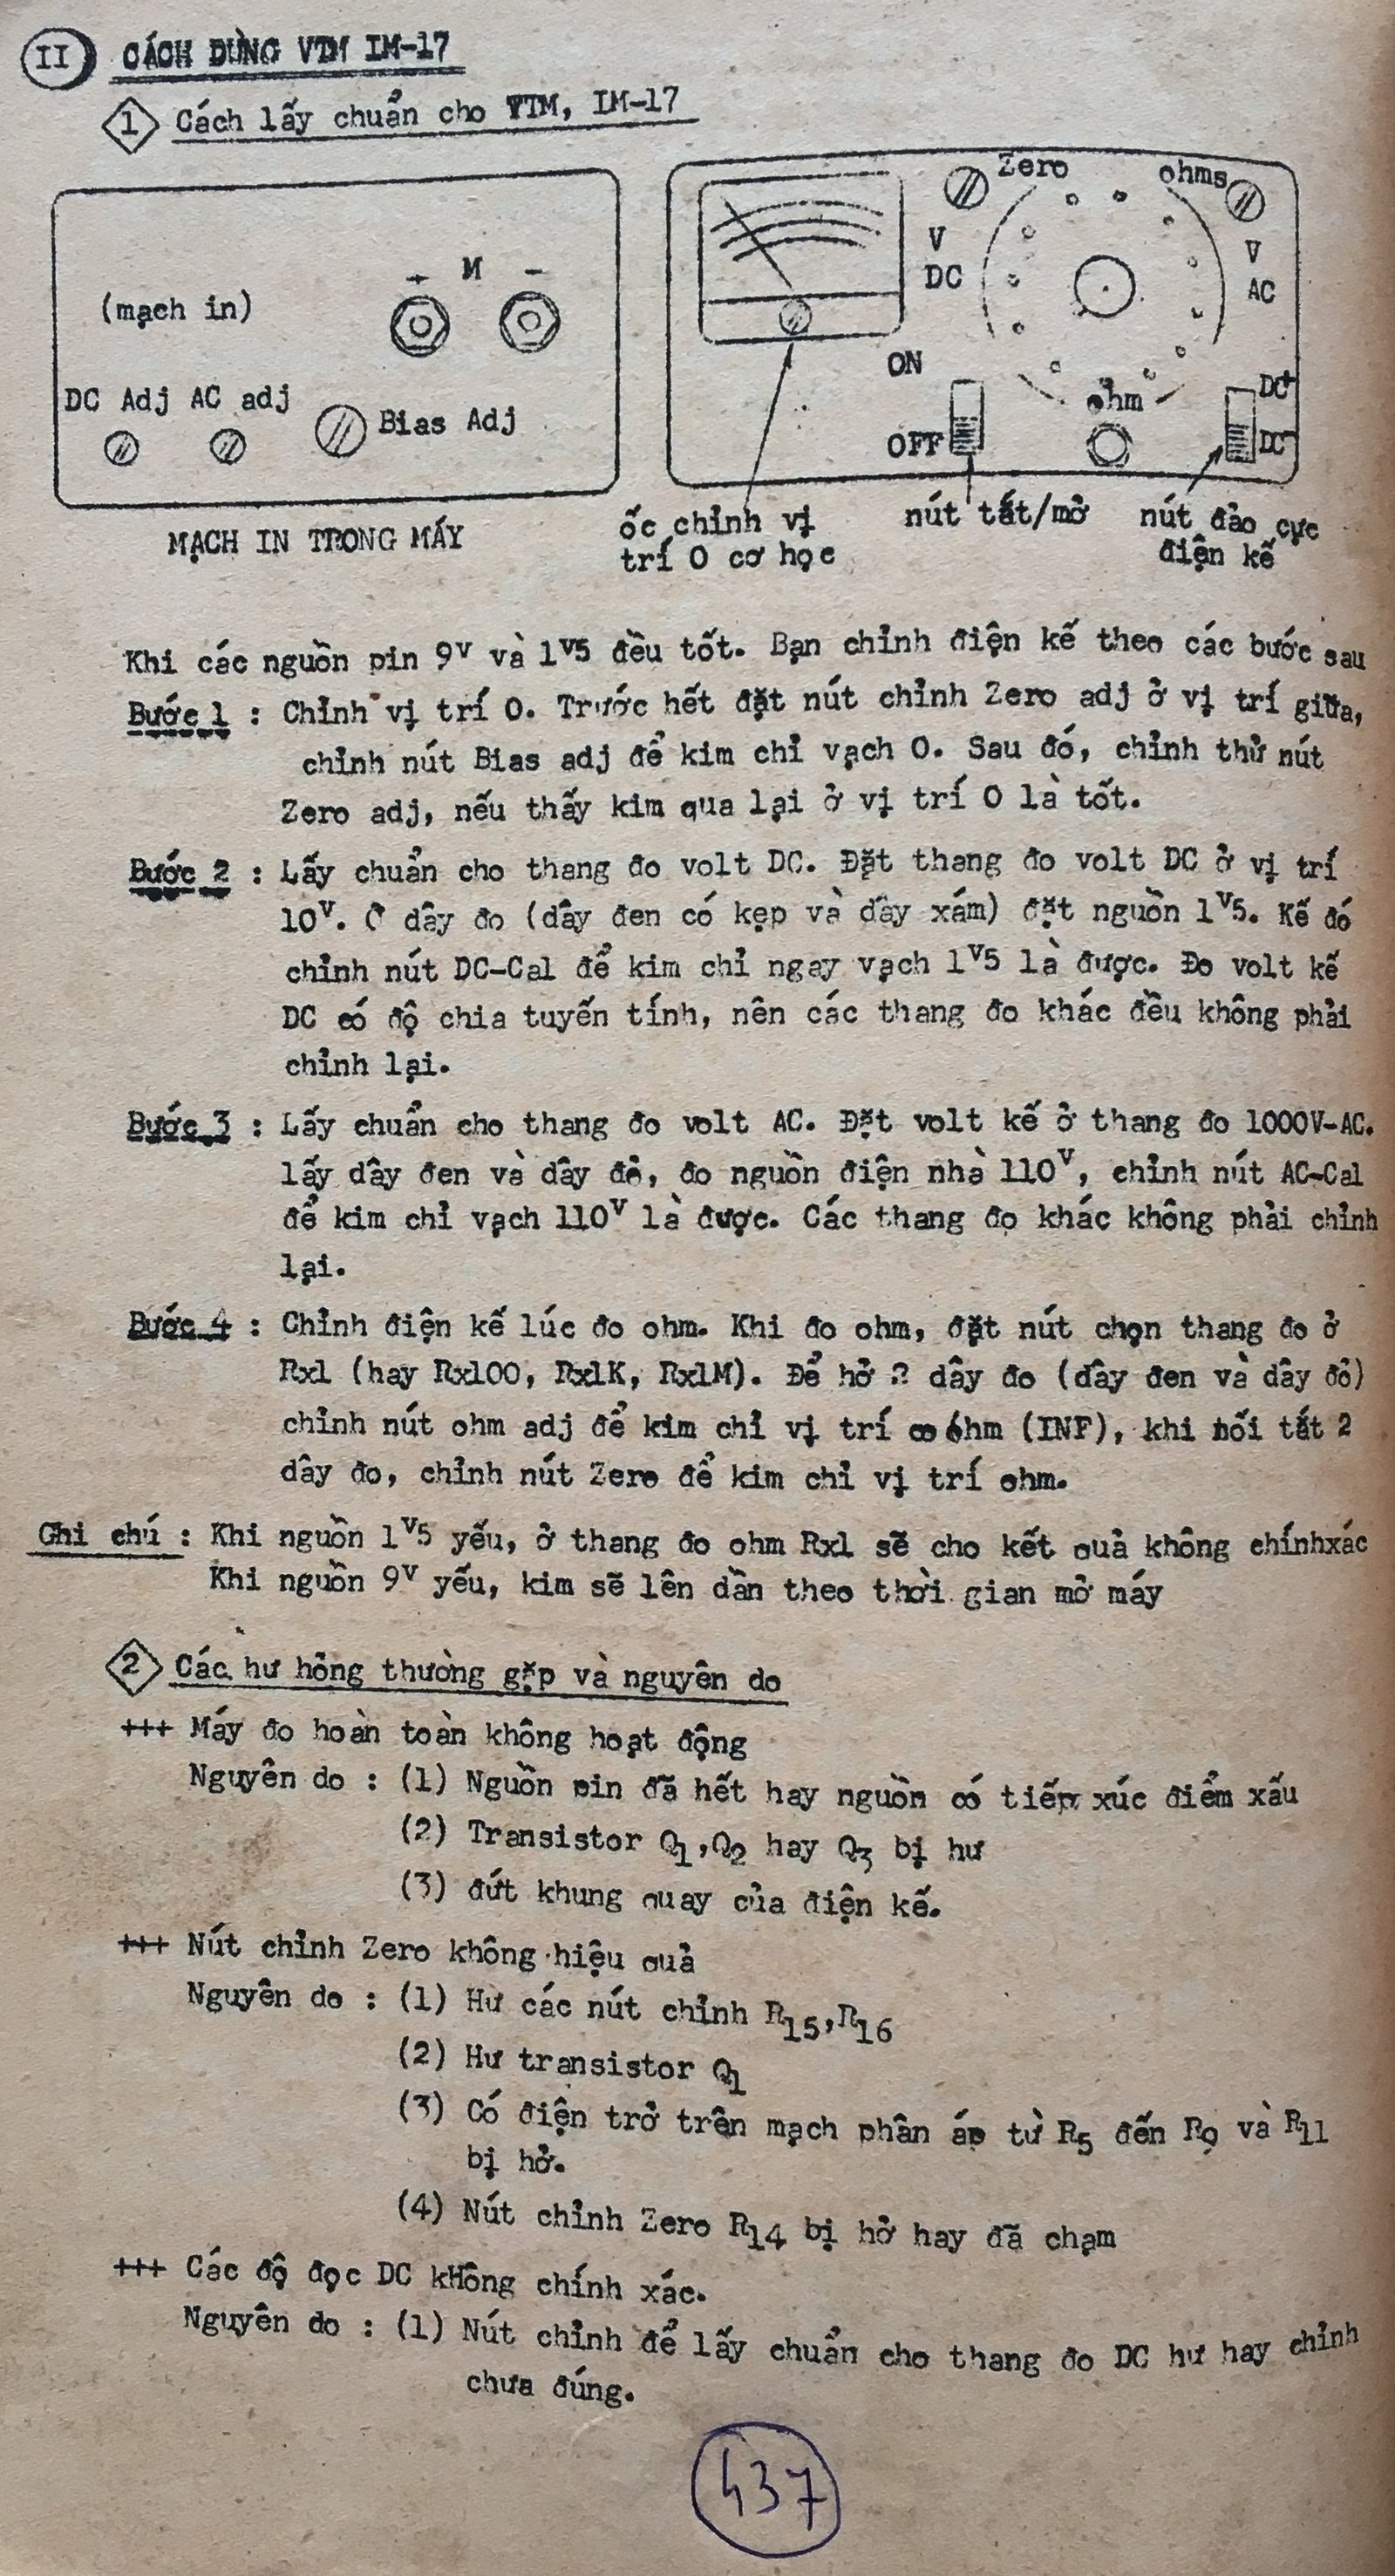 II CÁCH DÙNG VTM IM-17
1 Cách lấy chuẩn cho VTM, IM-17
(mạch in)
+ M -
DC Adj AC adj
Bias Adj
MẠCH IN TRONG MÁY
Zero ohms
V
DC
V
AC
ON
OFF
ohm
DC+
DC-
ốc chỉnh vị
trí 0 cơ học
nút tắt/mở
nút đảo cực
điện kế
Khi các nguồn pin 9V và 1V5 đều tốt. Bạn chỉnh điện kế theo các bước sau
Bước 1 : Chỉnh vị trí 0. Trước hết đặt nút chỉnh Zero adj ở vị trí giữa,
chỉnh nút Bias adj để kim chỉ vạch 0. Sau đó, chỉnh thử nút
Zero adj, nếu thấy kim qua lại ở vị trí 0 là tốt.
Bước 2 : Lấy chuẩn cho thang đo volt DC. Đặt thang đo volt DC ở vị trí
10V. Ở dây đo (dây đen có kẹp và dây xám) đặt nguồn 1V5. Kế đó
chỉnh nút DC-Cal để kim chỉ ngay vạch 1V5 là được. Do volt kế
DC có độ chia tuyến tính, nên các thang đo khác đều không phải
chỉnh lại.
Bước 3 : Lấy chuẩn cho thang đo volt AC. Đặt volt kế ở thang đo 1000V-AC.
lấy dây đen và dây đỏ, đo nguồn điện nhà 110V, chỉnh nút AC-Cal
để kim chỉ vạch 110V là được. Các thang đo khác không phải chỉnh
lại.
Bước 4 : Chỉnh điện kế lúc đo ohm. Khi đo ohm, đặt nút chọn thang đo ở
Rx1 (hay Rx100, Rx1K, Rx1M). Để hở 2 dây đo (dây đen và dây đỏ)
chỉnh nút ohm adj để kim chỉ vị trí ∞ ohm (INF), khi nối tắt 2
dây đo, chỉnh nút Zero để kim chỉ vị trí ohm.
Ghi chú : Khi nguồn 1V5 yếu, ở thang đo ohm Rx1 sẽ cho kết quả không chínhxác
Khi nguồn 9V yếu, kim sẽ lên dần theo thời gian mở máy
2 Các hư hỏng thường gặp và nguyên do
+++ Máy đo hoàn toàn không hoạt động
Nguyên do : (1) Nguồn pin đã hết hay nguồn có tiếp xúc điểm xấu
(2) Transistor Q1,Q2 hay Q3 bị hư
(3) đứt khung quay của điện kế.
+++ Nút chỉnh Zero không hiệu quả
Nguyên do : (1) Hư các nút chỉnh R15,R16
(2) Hư transistor Q1
(3) Có điện trở trên mạch phân áp từ R5 đến R9 và R11
bị hở.
(4) Nút chỉnh Zero R14 bị hở hay đã chạm
+++ Các độ đọc DC kHông chính xác.
Nguyên do : (1) Nút chỉnh để lấy chuẩn cho thang đo DC hư hay chỉnh
chưa đúng.
437